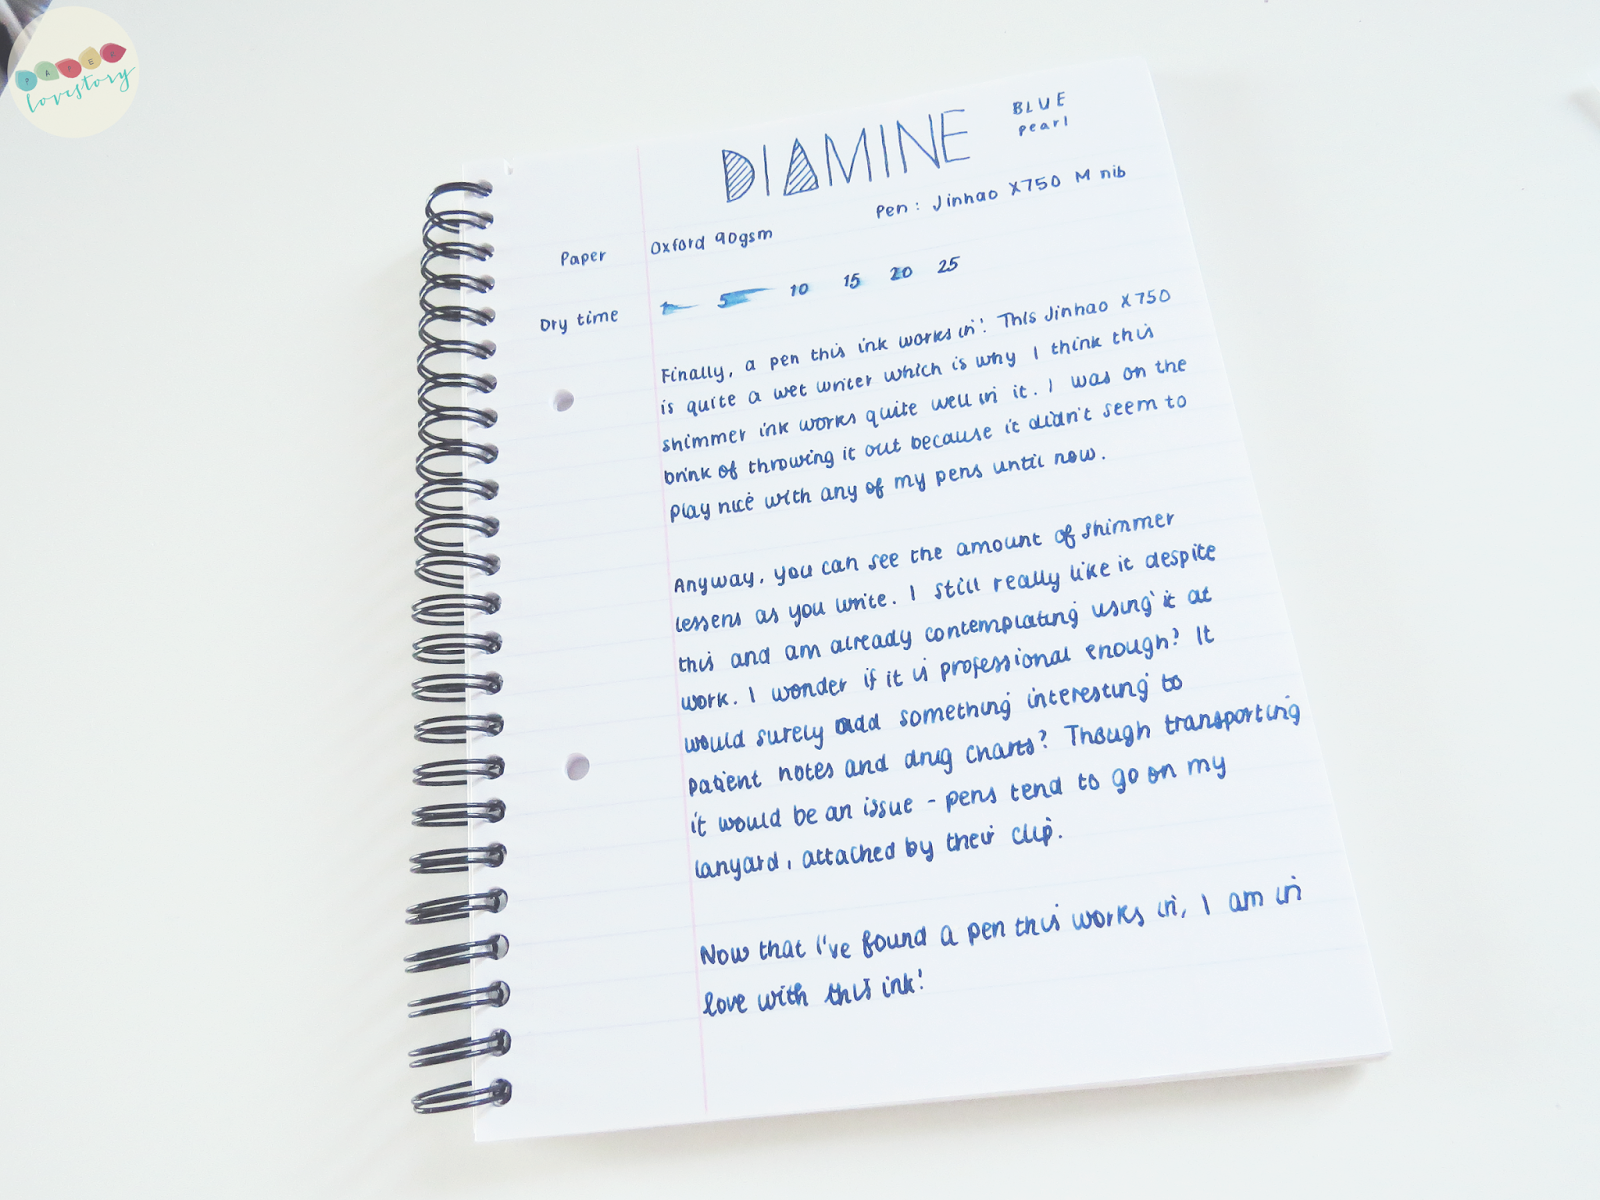 PAPER
lovestory
DIAMINE
BLUE
pearl
Pen: Jinhao X750 M nib
Paper
Oxford 90gsm
Dry time
1 5 10 15 20 25
Finally, a pen this ink works in! This Jinhao X750
is quite a wet writer which is why I think this
shimmer ink works quite well in it. I was on the
brink of throwing it out because it didn't seem to
play nice with any of my pens until now.
Anyway, you can see the amount of shimmer
lessens as you write. I still really like it despite
this and am already contemplating using it at
work. I wonder if it is professional enough? It
would surely add something interesting to
patient notes and drug charts? Though transporting
it would be an issue - pens tend to go on my
lanyard, attached by their clip.
Now that I've found a pen this works in, I am in
love with this ink!